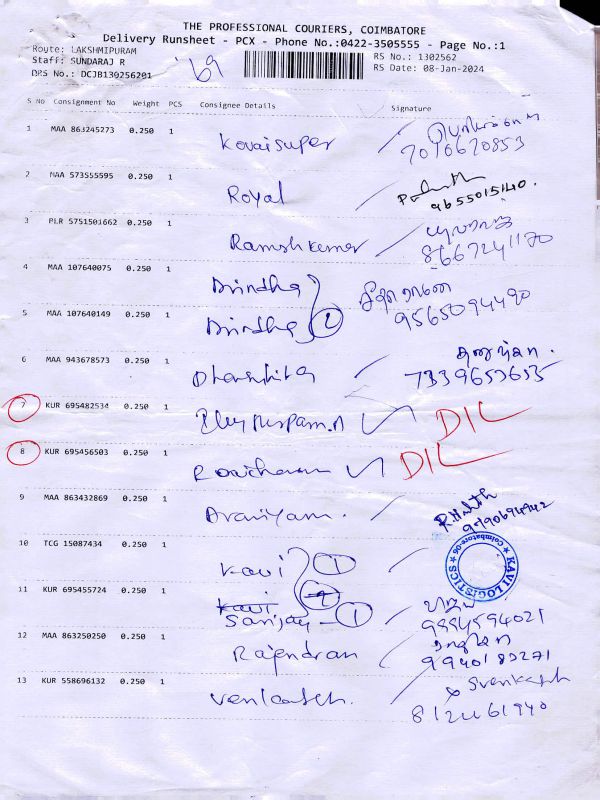 THE PROFESSIONAL COURIERS, COIMBATORE
Delivery Runsheet - PCX - Phone No.:0422-3505555 - Page No.:1
Route: LAKSHMIPURAM
Staff: SUNDARAJ R RS No.: 1302562
DRS No.: DCJB139256201 '69 RS Date: 08-Jan-2024
S No Consignment No Weight PCS Consignee Details Signature
1 MAA 863245273 0.250 1 Kovai super
7010670853
2 MAA 573555595 0.250 1 Royal
9655015140.
3 PLR 5751501662 0.250 1 Ramsh kumar
8667241170
4 MAA 107640075 0.250 1 Brindha
5 MAA 107640149 0.250 1 Brindha 2 9565094490
6 MAA 943678573 0.250 1
7339653635
7 KUR 695482534 0.250 1 DIL
8 KUR 695456503 0.250 1 DIL
9 MAA 863432869 0.250 1
9790694942
10 TCG 15087434 0.250 1 Kavi 1
KAVI LOGISTICS ★ Coimbatore-06 ★
11 KUR 695455724 0.250 1 Kavi
Sanjay - 1 9894594021
12 MAA 863250250 0.250 1 Rajendran
9940183271
13 KUR 558696132 0.250 1 Venkatesh. Svenkatesh
8124461940